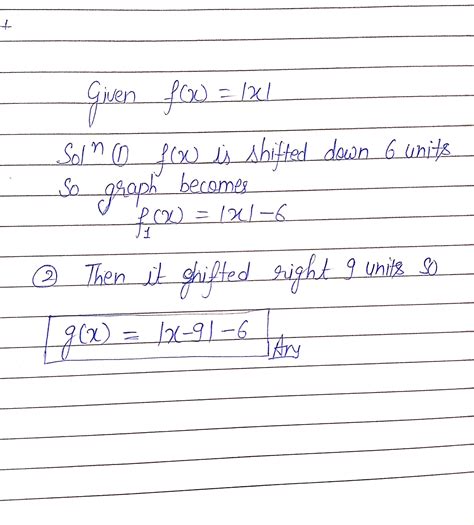 Given f(x) = |x|
Solⁿ ① f(x) is shifted down 6 units
So graph becomes
f₁(x) = |x| - 6
② Then it shifted right 9 units so
g(x) = |x-9| - 6 Ans